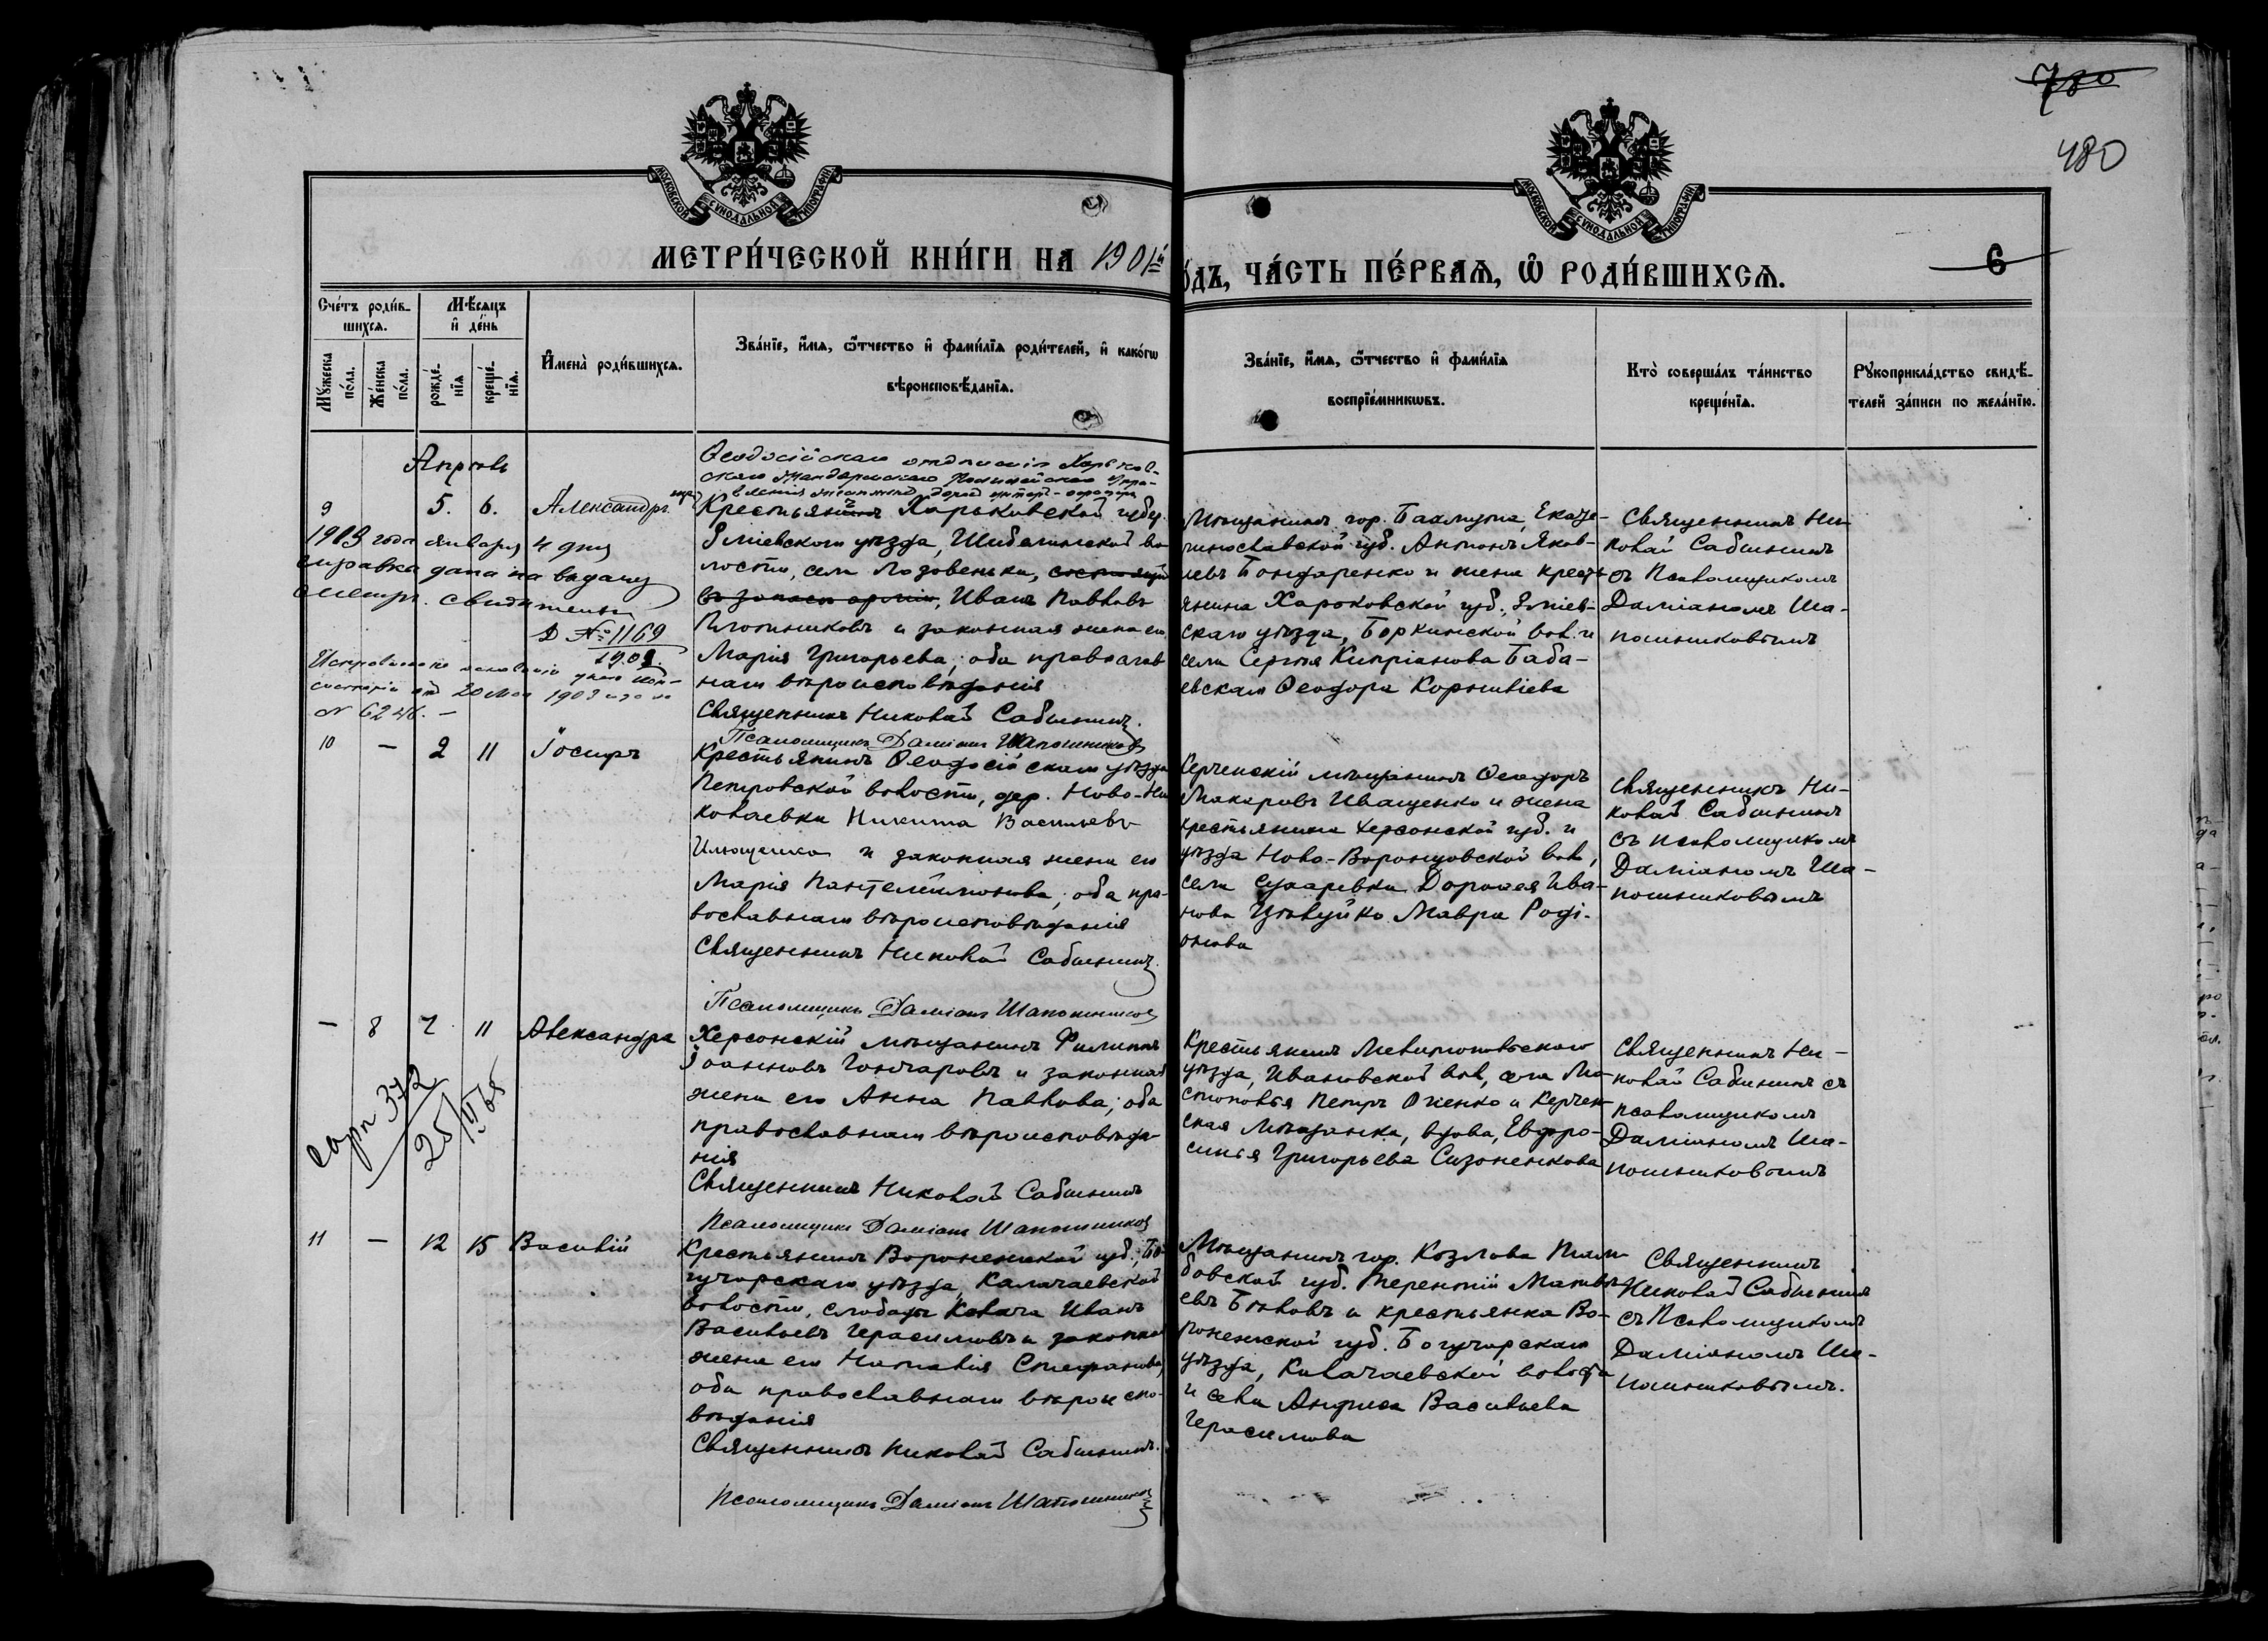 780
480
МОСКОВСКОЙ СУНОДАЛЬНОЙ ТИПОГРАФІИ
МОСКОВСКОЙ СУНОДАЛЬНОЙ ТИПОГРАФІИ
МЕТРИ́ЧЕСКОЙ КНИ́ГИ НА 1901й
О́ДЪ, ЧА́СТЬ ПЕ́РВАѦ, Ѡ҆ РОДИ́ВШИХСѦ.
6
Сче́тъ роди́в-
шихсѧ.
Мꙋжеска по́ла.
Же́нска по́ла.
Мѣ́сѧцъ
и҆ де́нь
рожде́-
нїѧ
креще́-
нїѧ.
И҆мена̀ роди́вшихсѧ.
Зва́нїе, и҆́мѧ, ѻ҆́тчество и҆ фами́лїѧ роди́телей, и҆ како́гѡ
вѣроисповѣ́данїѧ.
Зва́нїе, и҆́мѧ, ѻ҆́тчество и҆ фами́лїѧ
воспрїе́мникѡвъ.
Кто̀ соверша́лъ та́инство
креще́нїѧ.
Рꙋкоприкла́дство свидѣ́-
телей за́писи по жела́нїю.
Апрѣль
Ѳеодосійскаго отдѣленія Харьков-
скаго Жандармскаго Полицейскаго Упра-
вленія желѣзныхъ дорог унтеръ-офицеръ
9
5. 6. Александръ
Крестьянинъ Харьковской губер.
1903 года января 4 дня
Зміевскаго уѣзда, Шебелинской во-
справка дана на выдачу
лости, села Лозовеньки, состоящій
метрич. свидѣтельст.
въ запасѣ арміи, Иванъ Павловъ
№ 1169
1903.
Плотниковъ и законная жена его
Марія Григорьева; оба православ
наго вѣроисповѣданія
Исправлено
от 20 мая 1903 года
№ 6246.
Священникъ Николай Сабининъ.
Псаломщикъ Даміанъ Шапошниковъ
Мѣщанинъ гор. Бахмута, Екате-
ринославской губ. Антонъ Яков-
левъ Бондаренко и жена кресть-
янина Харьковской губ., Зміев-
скаго уѣзда, Боркинской вол. и
села Сергѣя Кипріанова Баба-
евскаго Ѳеодора Корниліева
Священникъ Ни-
колай Сабининъ
съ Псаломщикомъ
Даміаномъ Ша-
пошниковымъ
10 — 2 11 Іосифъ
Крестьянинъ Ѳеодосійскаго уѣзда
Петровской волости, дер. Ново-Ни
колаевки Никита Васильевъ
Ильющенко и законная жена его
Марія Пантелеимонова; оба пра-
вославнаго вѣроисповѣданія
Священникъ Николай Сабининъ.
Псаломщикъ Даміанъ Шапошниковъ
Керченскій мѣщанинъ Ѳеодоръ
Макаровъ Иващенко и жена
крестьянина Херсонской губ. и
уѣзда Ново-Воронцовской вол,
села Дороѳея Ива-
нова Мавра Роді-
онова
Священникъ Ни-
колай Сабининъ
съ псаломщикомъ
Даміаномъ Ша-
пошниковымъ
— 8 7 11 Александра
Херсонскій мѣщанинъ Филиппъ
Іоанновъ Гончаровъ и законная
жена его Анна Павлова; оба
православнаго вѣроисповѣда-
нія
Священникъ Николай Сабининъ
Псаломщикъ Даміанъ Шапошниковъ
справ 372
25/IV 65
Крестьянинъ Мелитопольскаго
уѣзда, Ивановской вол,
Петръ Огіенко и Керчен-
ская мѣщанка, вдова, Евфро-
синья Григорьева Сизоненкова
Священникъ Ни-
колай Сабининъ съ
псаломщикомъ
Даміаномъ Ша-
пошниковымъ
11 — 12 15 Василій
Крестьянинъ Воронежской губ., Бо-
гучарскаго уѣзда, Калачаевской
волости, слободы Калача Иванъ
Васильевъ Герасимовъ и законная
жена его Наталія Стефанова,
оба православнаго вѣроиспо-
вѣданія
Священникъ Николай Сабининъ.
Псаломщикъ Даміанъ Шапошниковъ
Мѣщанинъ гор. Козлова Там-
бовской губ. Терентій Матвѣ-
евъ Бѣловъ и крестьянка Во-
ронежской губ. Богучарскаго
уѣзда, Калачаевской волости
и села Анфиса Васильева
Герасимова
Священникъ
Николай Сабининъ
съ Псаломщикомъ
Даміаномъ Ша-
пошниковымъ.